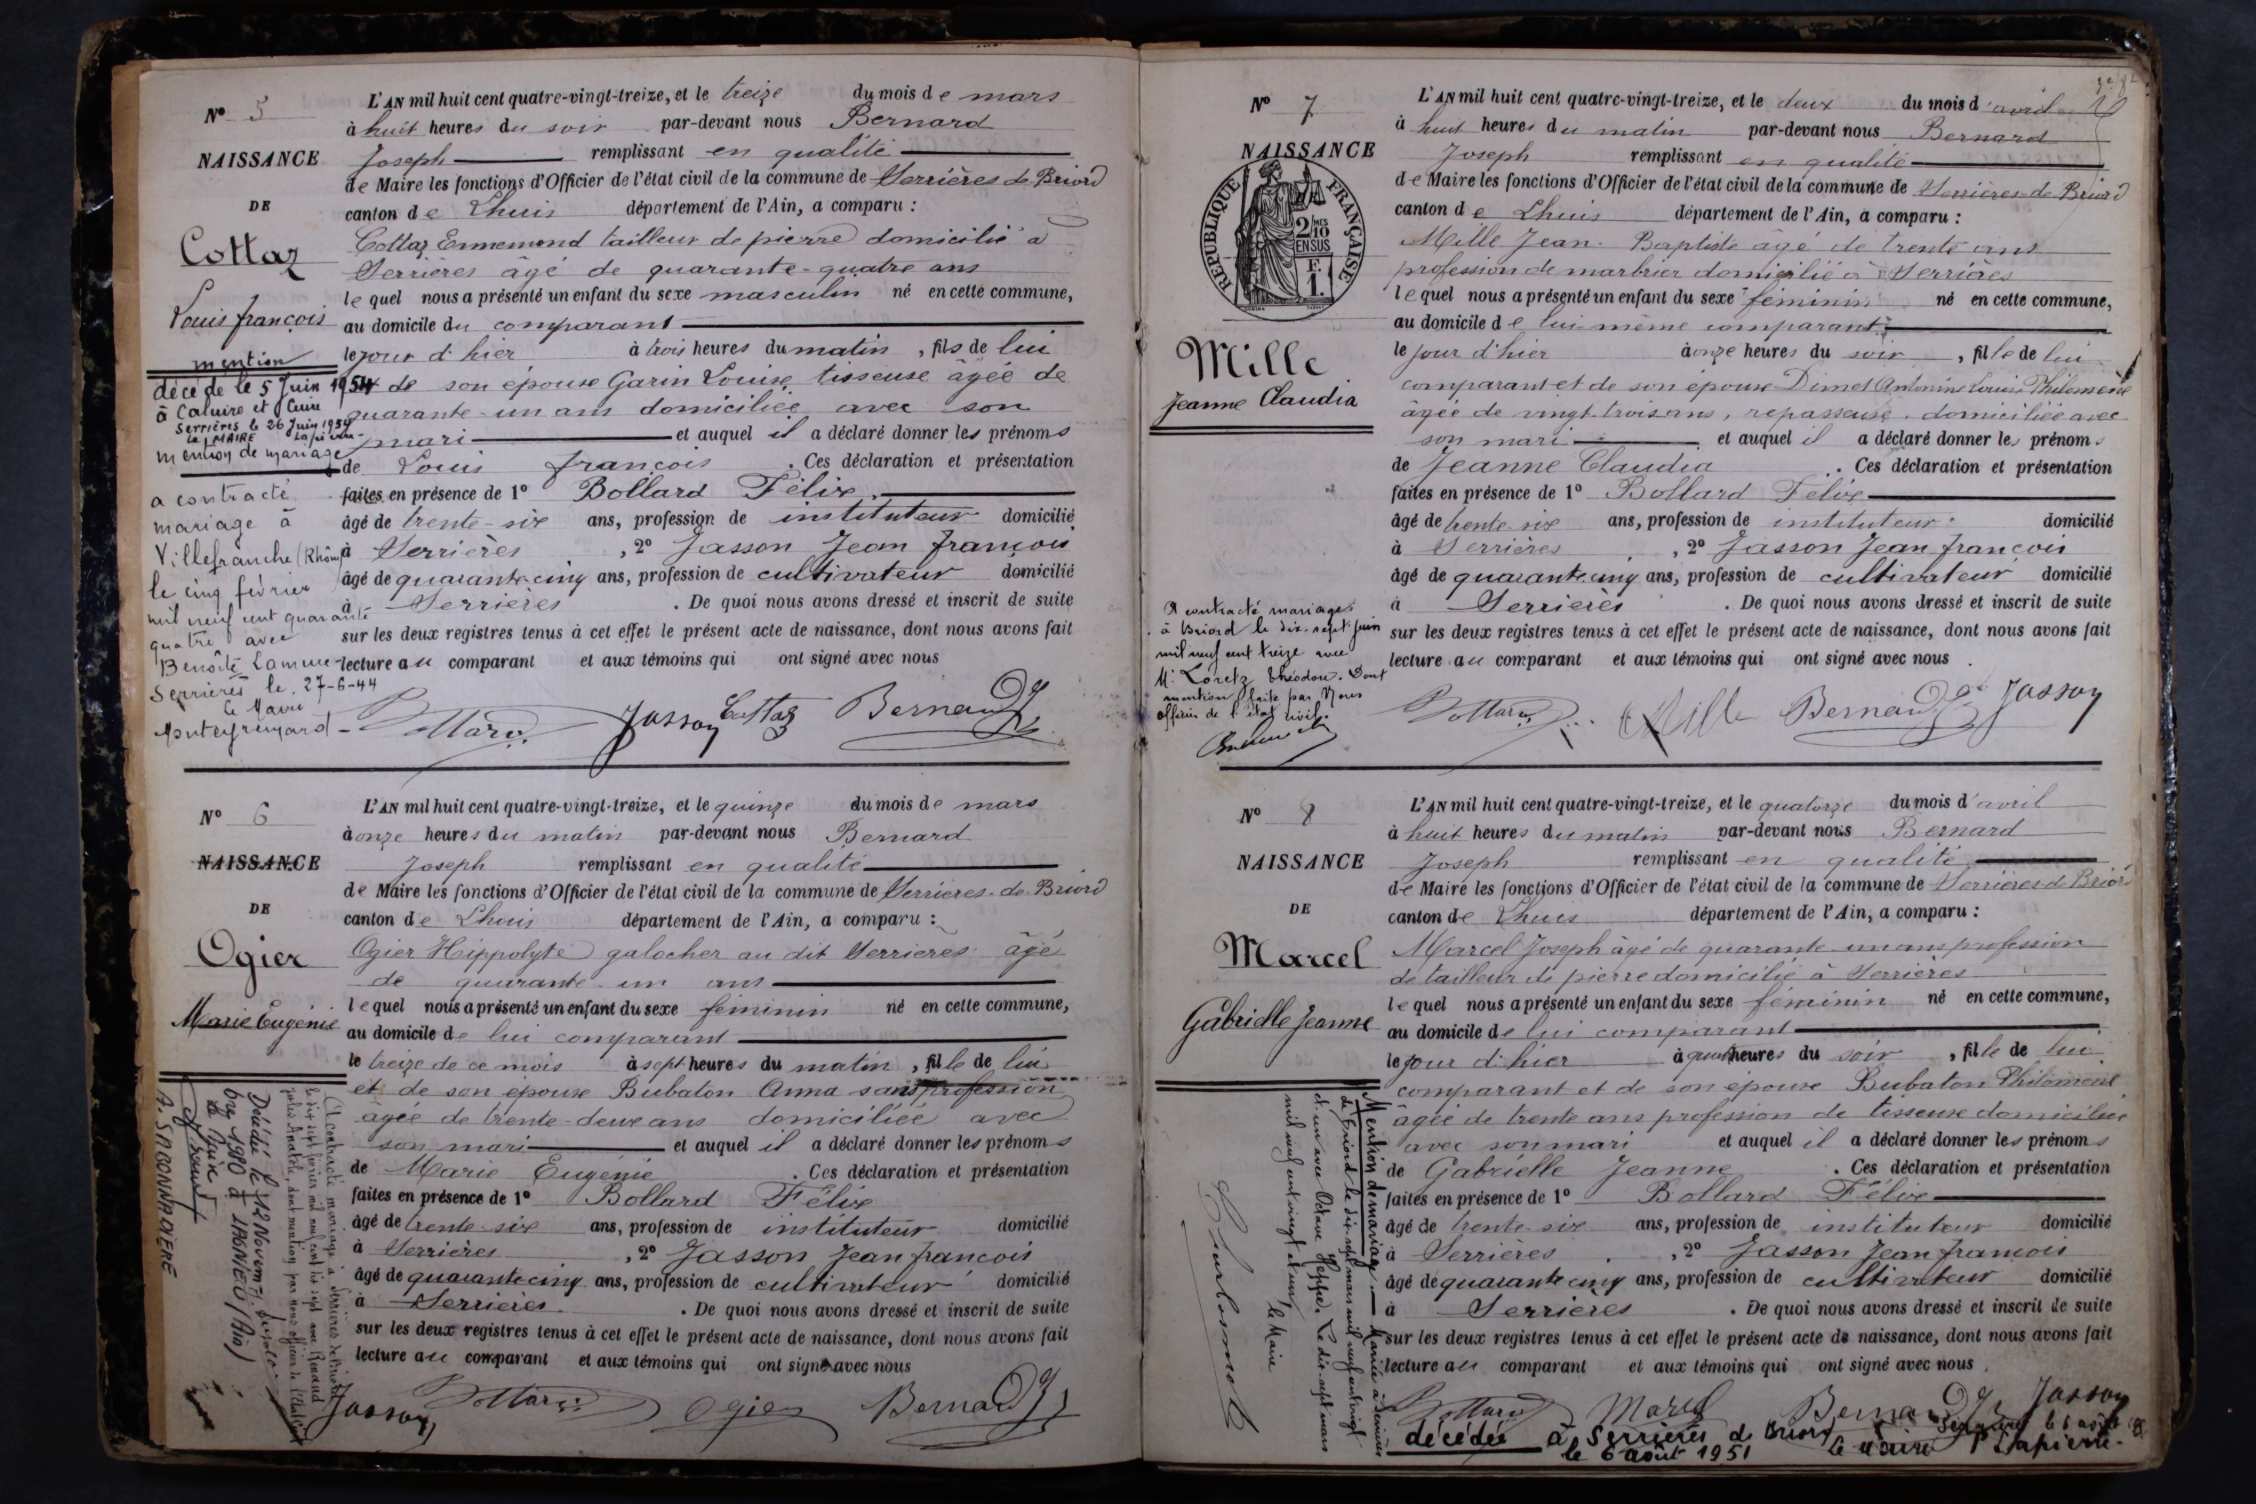 N° 5
NAISSANCE
DE
Cottaz
Louis françois
mention
décédé le 5 Juin 1954
à Caluire et Cuire
Serrières le 26 Juin 1954
Le MAIRE Lapierre
mention de mariage
a contracté
mariage à
Villefranche (Rhône)
le cinq février
mil neuf cent quarante
quatre avec
Benoîte
Serrières le 27-6-44
Le Maire
L'AN mil huit cent quatre-vingt-treize, et le treize du mois de mars
à huit heures du soir par-devant nous Bernard
Joseph remplissant en qualité
de Maire les fonctions d'Officier de l'état civil de la commune de Serrières de Briord
canton de Lhuis département de l'Ain, a comparu :
Cottaz Ennemond tailleur de pierre domicilié à
Serrières âgé de quarante-quatre ans
lequel nous a présenté un enfant du sexe masculin né en cette commune,
au domicile du comparant
le jour d'hier à trois heures du matin, fils de lui
et de son épouse Garin Louise tisseuse âgée de
quarante-un ans domiciliée avec son
mari et auquel il a déclaré donner les prénoms
de Louis françois. Ces déclaration et présentation
faites en présence de 1° Bollard Félix
âgé de trente-six ans, profession de instituteur domicilié
à Serrières, 2° Jasson Jean françois
âgé de quarante-cinq ans, profession de cultivateur domicilié
à Serrières. De quoi nous avons dressé et inscrit de suite
sur les deux registres tenus à cet effet le présent acte de naissance, dont nous avons fait
lecture au comparant et aux témoins qui ont signé avec nous
Bollard Jasson Cottaz Bernard
N° 6
NAISSANCE
DE
Ogier
Marie Eugénie
A contracté mariage à Serrières de Briord
le dix sept février mil neuf cent dix sept avec Renaud
dont mention par nous officier de l'état civil
Décédé le 12 Novem
bre 1980 à LAGNIEU (Ain)
Le Maire
L'AN mil huit cent quatre-vingt-treize, et le quinze du mois de mars
à onze heures du matin par-devant nous Bernard
Joseph remplissant en qualité
de Maire les fonctions d'Officier de l'état civil de la commune de Serrieres-de-Briord
canton de Lhuis département de l'Ain, a comparu :
Ogier Hippolyte galocher au dit Serrieres âgé
de quarante-un ans
lequel nous a présenté un enfant du sexe féminin né en cette commune,
au domicile de lui comparant
le treize de ce mois à sept heures du matin, fille de lui
et de son épouse Bubaton Anna sans profession
agée de trente-deux ans domiciliée avec
son mari et auquel il a déclaré donner les prénoms
de Marie Eugénie. Ces déclaration et présentation
faites en présence de 1° Bollard Félix
âgé de trente-six ans, profession de instituteur domicilié
à Serrières, 2° Jasson Jean francois
âgé de quarante cinq ans, profession de cultivateur domicilié
à Serrières. De quoi nous avons dressé et inscrit de suite
sur les deux registres tenus à cet effet le présent acte de naissance, dont nous avons fait
lecture au comparant et aux témoins qui ont signé avec nous
Jasson Bollard Ogier Bernard
N° 7
NAISSANCE
RÉPUBLIQUE FRANÇAISE
2/10 MES
EN SUS
F.
1.
Mille
Jeanne Claudia
A contracté mariage
à Briord le dix-sept juin
mil neuf cent treize avec
Mr Loretz Théodore. Dont
mention faite par Nous
officier de l'état civil.
L'AN mil huit cent quatre-vingt-treize, et le deux du mois d'avril
à huit heures du matin par-devant nous Bernard
Joseph remplissant en qualité
de Maire les fonctions d'Officier de l'état civil de la commune de Serrières-de-Briord
canton de Lhuis département de l'Ain, a comparu :
Mille Jean-Baptiste âgé de trente ans
profession de marbrier domicilié à Serrières
lequel nous a présenté un enfant du sexe féminin né en cette commune,
au domicile de lui-même comparant
le jour d'hier à onze heures du soir, fille de lui
comparant et de son épouse Dimet Antonine Louise Philomène
âgée de vingt-trois ans, repasseuse, domiciliée avec
son mari et auquel il a déclaré donner les prénoms
de Jeanne Claudia. Ces déclaration et présentation
faites en présence de 1° Bollard Félix
âgé de trente-six ans, profession de instituteur domicilié
à Serrières, 2° Jasson Jean francois
âgé de quarante cinq ans, profession de cultivateur domicilié
à Serrières. De quoi nous avons dressé et inscrit de suite
sur les deux registres tenus à cet effet le présent acte de naissance, dont nous avons fait
lecture au comparant et aux témoins qui ont signé avec nous.
Bollard Mille Bernard Jasson
N° 8
NAISSANCE
DE
Marcel
Gabrielle Jeanne
Mention de mariage. Mariée à Serrières
de Briord le dix-sept mars mil neuf cent vingt
et un avec Octave Le dix-sept mars
mil neuf cent vingt et un,
le Maire
L'AN mil huit cent quatre-vingt-treize, et le quatorze du mois d'avril
à huit heures du matin par-devant nous Bernard
Joseph remplissant en qualité
de Maire les fonctions d'Officier de l'état civil de la commune de Serrières de Briord
canton de Lhuis département de l'Ain, a comparu :
Marcel Joseph âgé de quarante-un ans profession
de tailleur de pierre domicilié à Serrières
lequel nous a présenté un enfant du sexe féminin né en cette commune,
au domicile de lui comparant
le jour d'hier à quatre heures du soir, fille de lui
comparant et de son épouse Bubaton Philomène
âgée de trente ans profession de tisseuse domiciliée
avec son mari et auquel il a déclaré donner les prénoms
de Gabriélle Jeanne. Ces déclaration et présentation
faites en présence de 1° Bollard Félix
âgé de trente-six ans, profession de instituteur domicilié
à Serrières, 2° Jasson Jean francois
âgé de quarante cinq ans, profession de cultivateur domicilié
à Serrières. De quoi nous avons dressé et inscrit de suite
sur les deux registres tenus à cet effet le présent acte de naissance, dont nous avons fait
lecture au comparant et aux témoins qui ont signé avec nous.
Bollard Marcel Bernard Jasson
décédée à Serrières de Briord
le 6 août 1951
le Maire Lapierre